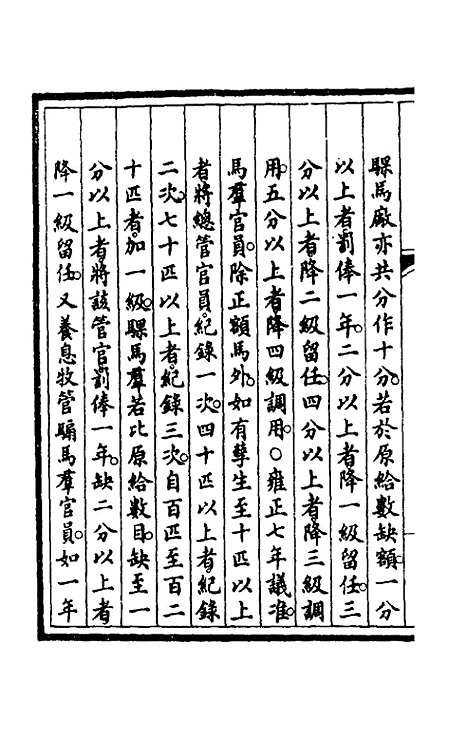 騍馬厰亦共分作十分若於原給數缺額一分
以上者罰俸一年二分以上者降一級留任三
分以上者降二級留任四分以上者降三級調
用五分以上者降四級調用○雍正七年議准
馬羣官員除正額馬外如有孳生至十匹以上
者將總管官員紀錄一次四十匹以上者紀錄
二次七十匹以上者紀錄三次自百匹至百二
十匹者加一級騍馬羣若比原給數目缺至一
分以上者將該管官罰俸一年缺二分以上者
降一級留任又養息牧管騸馬羣官員如一年